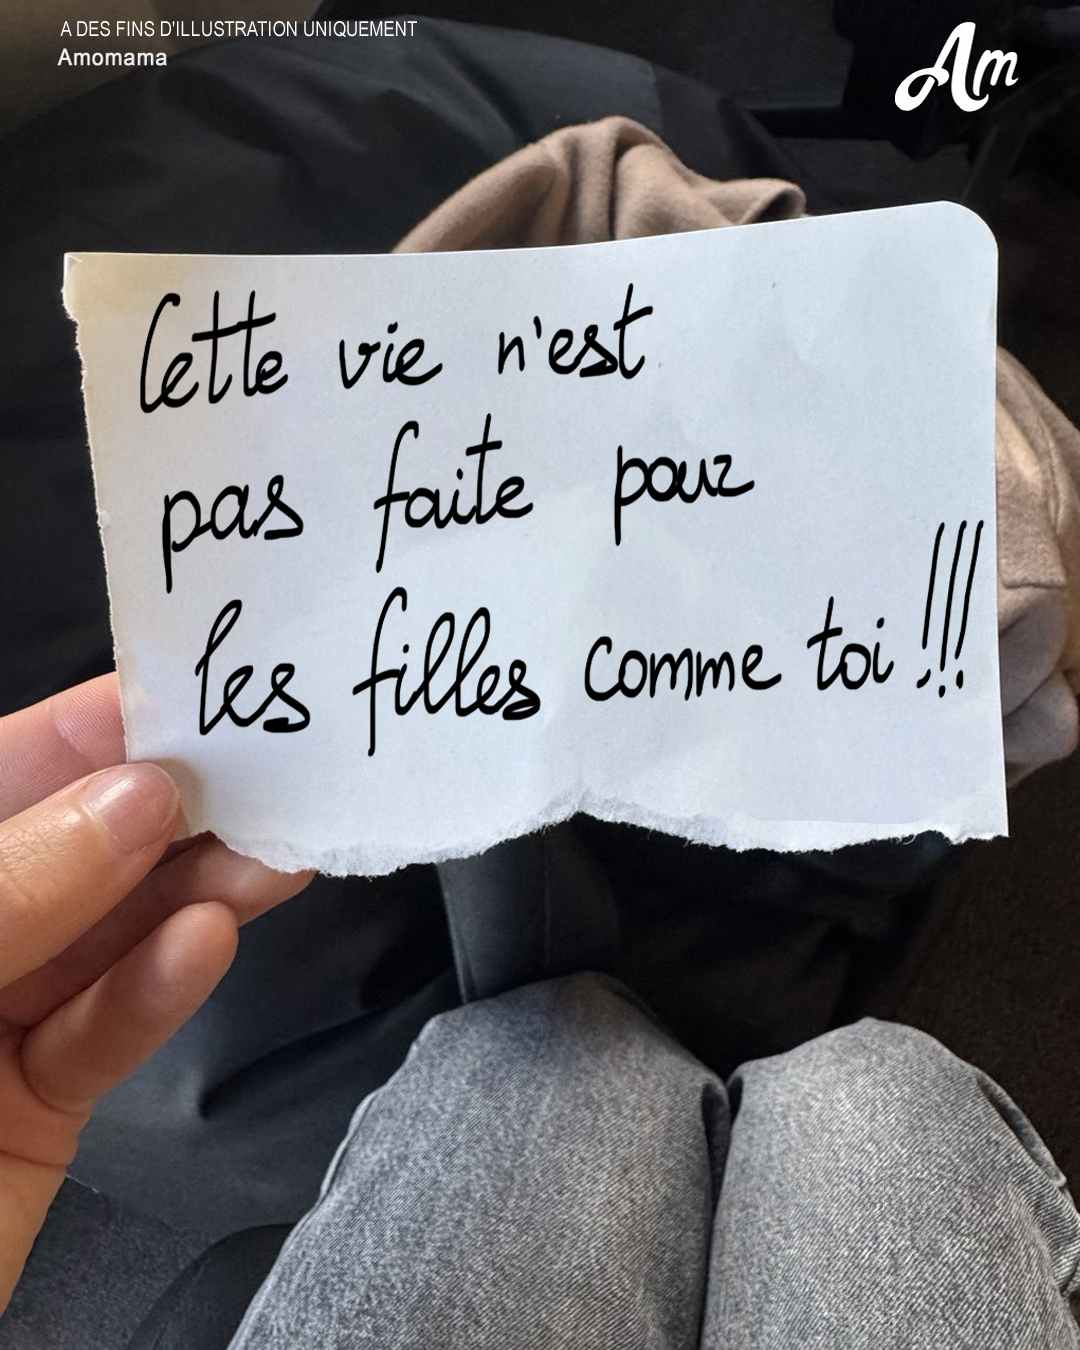 A DES FINS D'ILLUSTRATION UNIQUEMENT
Amomama
Am
Cette vie n'est
pas faite pour
les filles comme toi !!!